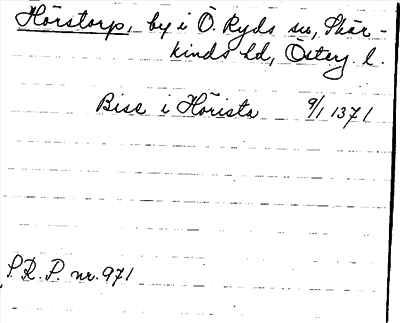 Hörstorp, by i Ö. Ryds sn, Skär-
kinds hd, Österg. l.
Bise i Hörista 9/1 1371
S.R.P. nr. 971